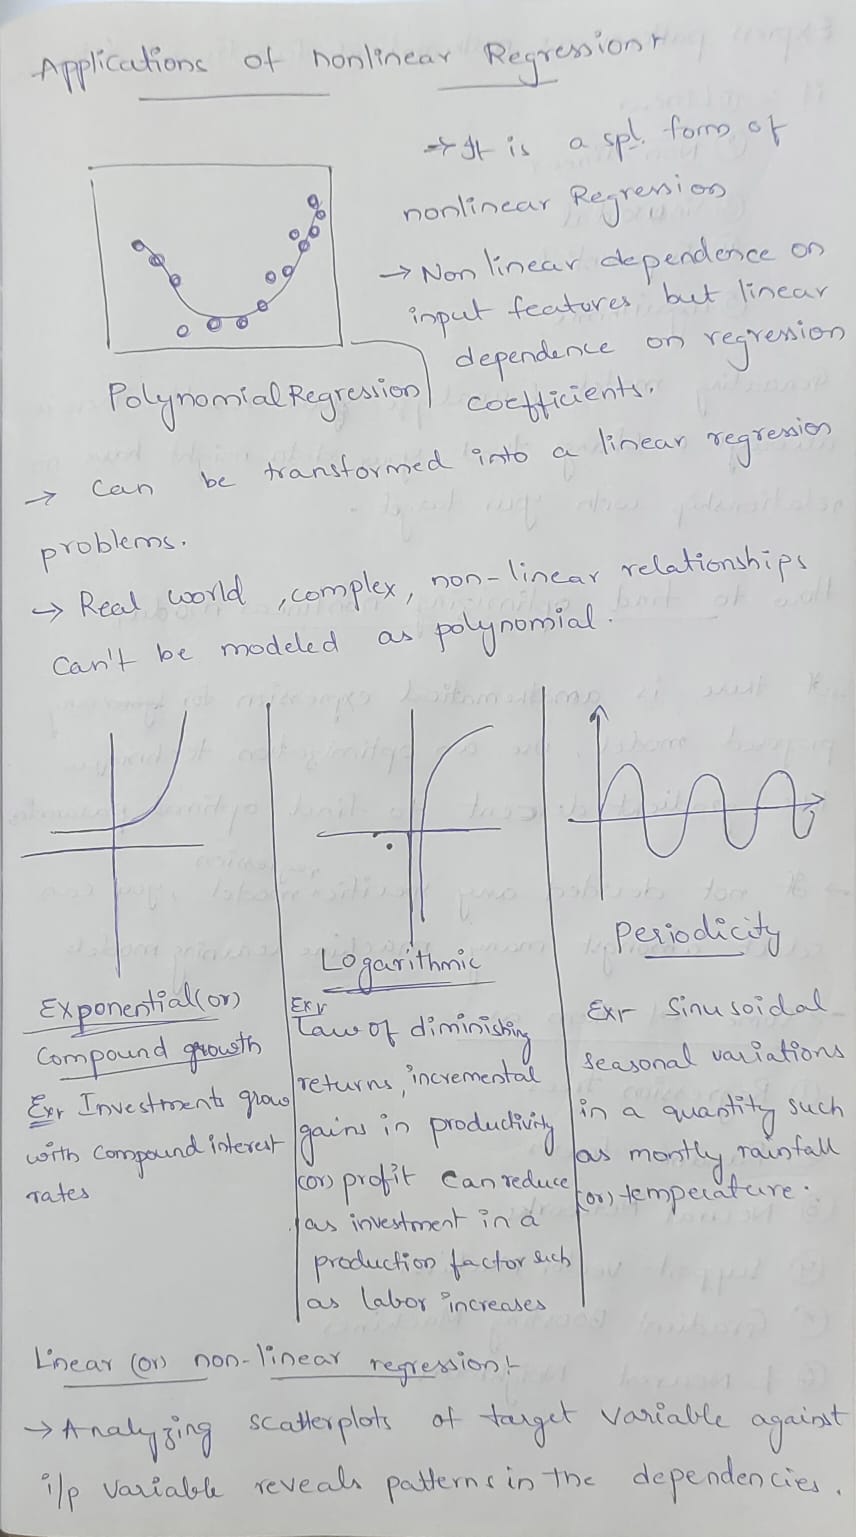 Applications of nonlinear Regression:-
→ It is a spl. form of
nonlinear Regression
→ Non linear dependence on
input features but linear
dependence on regression
coefficients.
Polynomial Regression
→ Can be transformed into a linear regression
problems.
→ Real world, complex, non-linear relationships
can't be modeled as polynomial.
Exponential (or)
Compound growth
Ex:- Investments grow
with compound interest
rates
Logarithmic
Ex:-
Law of diminishing
returns, incremental
gains in productivity
(or) profit can reduce
as investment in a
production factor such
as labor increases
Periodicity
Ex:- Sinusoidal
seasonal variations
in a quantity such
as montly rainfall
(or) temperature.
Linear (or) non-linear regression:-
→ Analyzing scatterplots of target variable against
i/p variable reveals patterns in the dependencies.